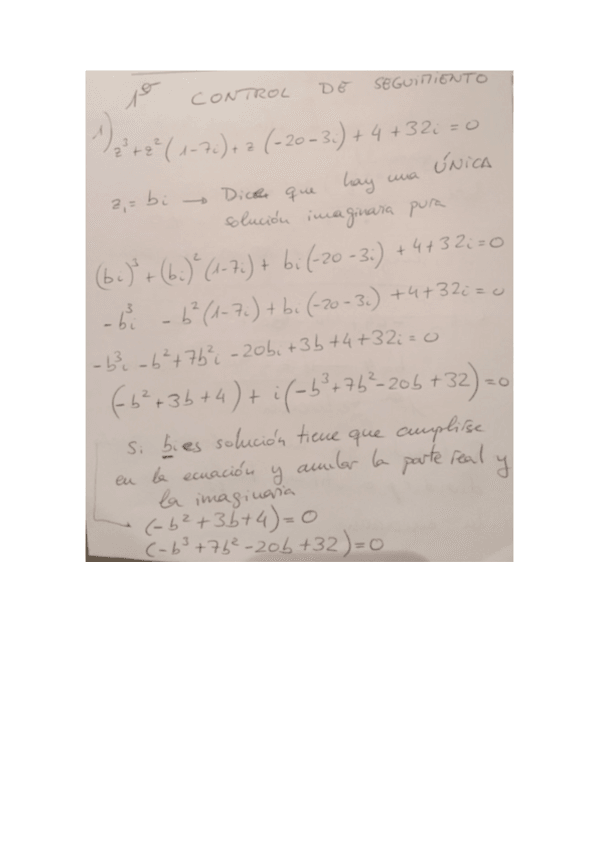 1º CONTROL DE SEGUIMIENTO
1) z³+z²(1-7i)+z(-20-3i)+4+32i=0
z₁=bi → Dice que hay una ÚNICA
solución imaginaria pura
(bi)³+(bi)²(1-7i)+bi(-20-3i)+4+32i=0
-b³i -b²(1-7i)+bi(-20-3i)+4+32i=0
-b³i-b²+7b²i-20bi+3b+4+32i=0
(-b²+3b+4)+i(-b³+7b²-20b+32)=0
Si bi es solución tiene que cumplirse
en la ecuación y anular la parte real y
la imaginaria
→ (-b²+3b+4)=0
(-b³+7b²-20b+32)=0